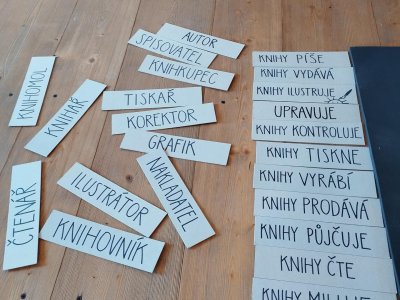 AUTOR
SPISOVATEL
KNIHKUPEC
KNIHOMOL
KNIHAŘ
TISKAŘ
KOREKTOR
GRAFIK
NAKLADATEL
ČTENÁŘ
ILUSTRÁTOR
KNIHOVNÍK
KNIHY PÍŠE
KNIHY VYDÁVÁ
KNIHY ILUSTRUJE
UPRAVUJE
KNIHY KONTROLUJE
KNIHY TISKNE
KNIHY VYRÁBÍ
KNIHY PRODÁVÁ
KNIHY PŮJČUJE
KNIHY ČTE
KNIHY MILUJE